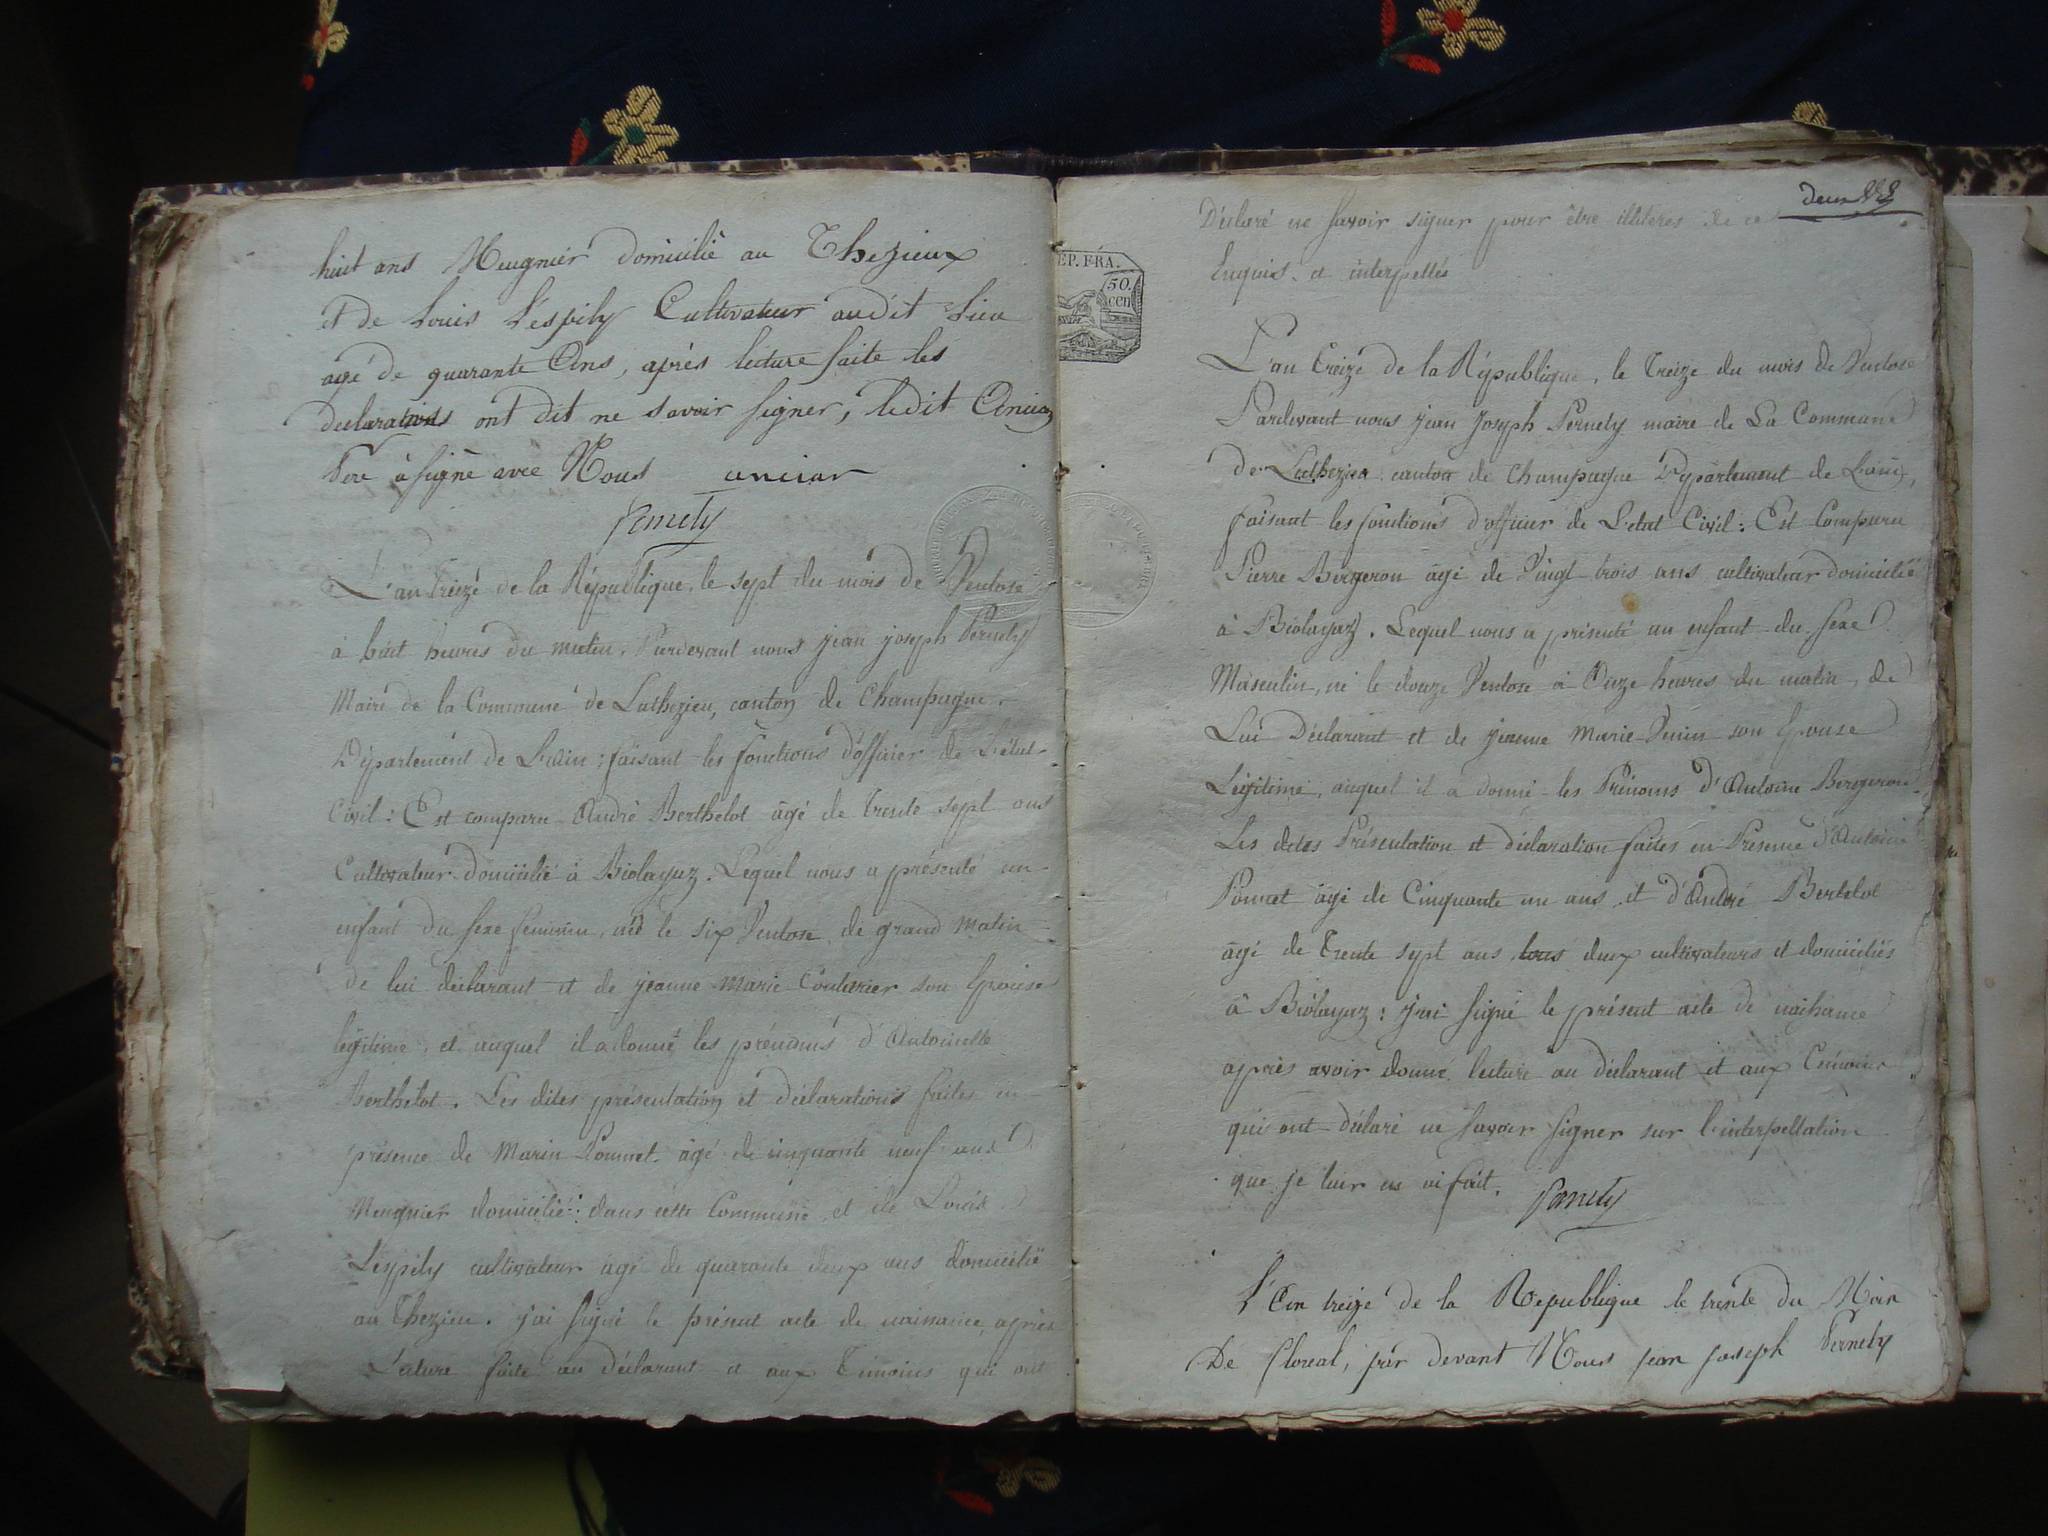 huit ans Meugnier domicilié au Thezieux
et de Louis Lespily Cultivateur audit Lieu
agé de quarante Ans, aprés lecture faite les
declarations ont dit ne savoir signer, ledit
Pere à signé avec Nous anciar
Pernely
L'an treize de la République, le sept du mois de Ventose
à huit heures du matin. Pardevant nous jean joseph Pernely
Maire de la Commune de Luthezieu, canton de Champagne,
Département de L'Ain; faisant les fonctions d'officier de L'état
Civil: Est comparu André Berthelot âgé de trente sept ans
Cultivateur domicilié à Biolayaz. Lequel nous a présenté un
enfant du sexe féminin, née le six Ventose de grand matin
de lui déclarant et de jeanne marie son Epouse
légitime, et auquel il a donné les prénoms d'Antoinette
Berthelot. Les dites présentation et déclarations faites en
présence de Marin Pounet âgé de cinquante neuf ans
Meugnier domicilié dans cette Commune, et de Louis
Léspily cultivateur agé de quarante deux ans domicilié
au Thezieu. j'ai signé le présent acte de naissance, aprés
Lecture faite au déclarant et aux Témoins qui ont
Déclaré ne savoir signer pour être illitères de ce
Enquis. et interpellés
REP. FRA.
50.
cen
L'an treize de la République, le treize du mois de Ventose
Pardevant nous jean joseph Pernely maire de La Commune
de Luthezieu canton de Champagne Département de L'ain,
faisant les fonctions d'officier de L'etat Civil: Est Comparu
Pierre Bergeron âgé de Vingt trois ans cultivateur domicilié
à Biolayaz. Lequel nous a présenté un enfant du sexe
Masculin, né le douze Ventose à Onze heures du matin, de
Lui Déclarant et de jeanne Marie son Epouse
Légitime, auquel il a donné les Prénoms d'Antoine Bergeron
Les dites Présentation et déclaration faites en Présence d'Antoine
Pounet âgé de Cinquante un ans et d'André Bertelot
âgé de trente sept ans tous deux cultivateurs et domiciliés
à Biolayaz: j'ai signé le présent acte de naissance
après avoir donné lecture au déclarant et aux Témoins
qui ont déclaré ne savoir signer sur l'interpellation
que je leur en ai fait. Pernely
L'An treize de la Republique le trente du Mois
De floreal, par devant Nous jean joseph Pernely